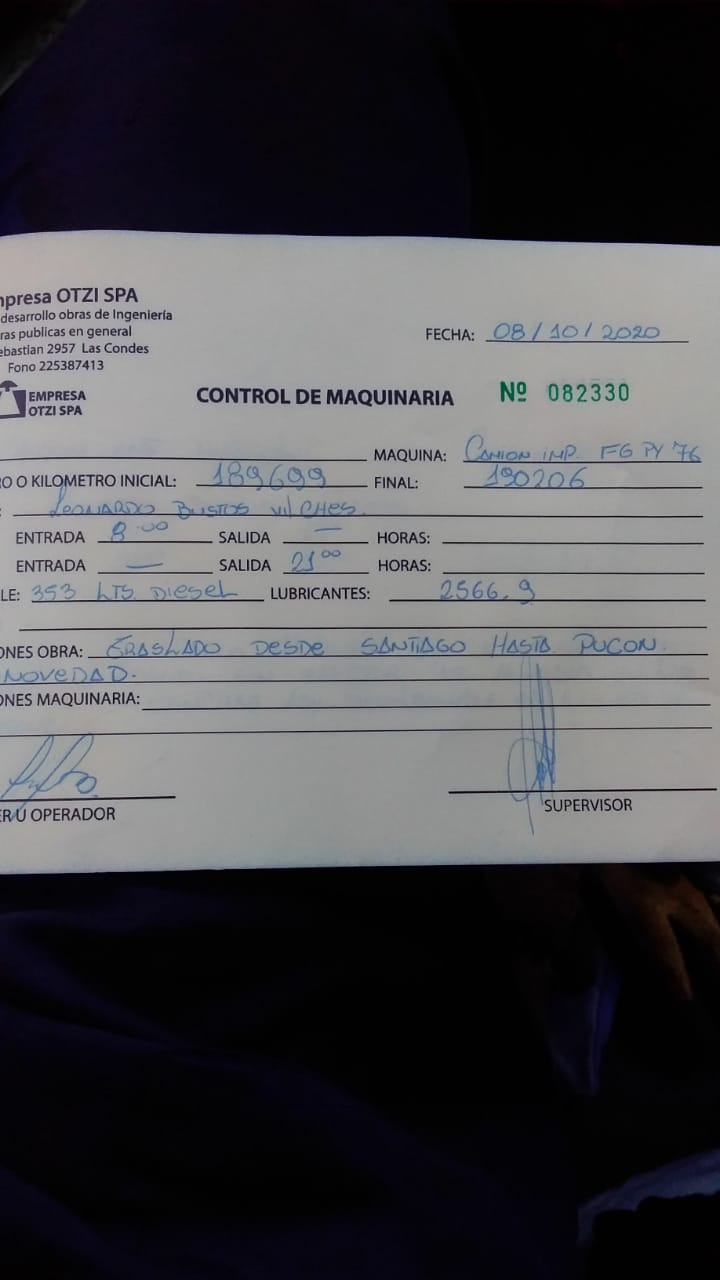 mpresa OTZI SPA
desarrollo obras de Ingeniería
ras publicas en general
ebastian 2957 Las Condes
Fono 225387413
FECHA: 08/10/2020
EMPRESA
OTZI SPA
CONTROL DE MAQUINARIA Nº 082330
MAQUINA: Camion imp. FG PY 76
RO O KILOMETRO INICIAL: 189699 FINAL: 190206
: Leonardo Bustos Vilches.
ENTRADA 8:00 SALIDA — HORAS:
ENTRADA — SALIDA 21:00 HORAS:
LE: 353 LTS. Diesel LUBRICANTES: 2566.9
ONES OBRA: TRASLADO DESDE SANTIAGO HASTA PUCON.
NOVEDAD.
ONES MAQUINARIA:
ER U OPERADOR
SUPERVISOR